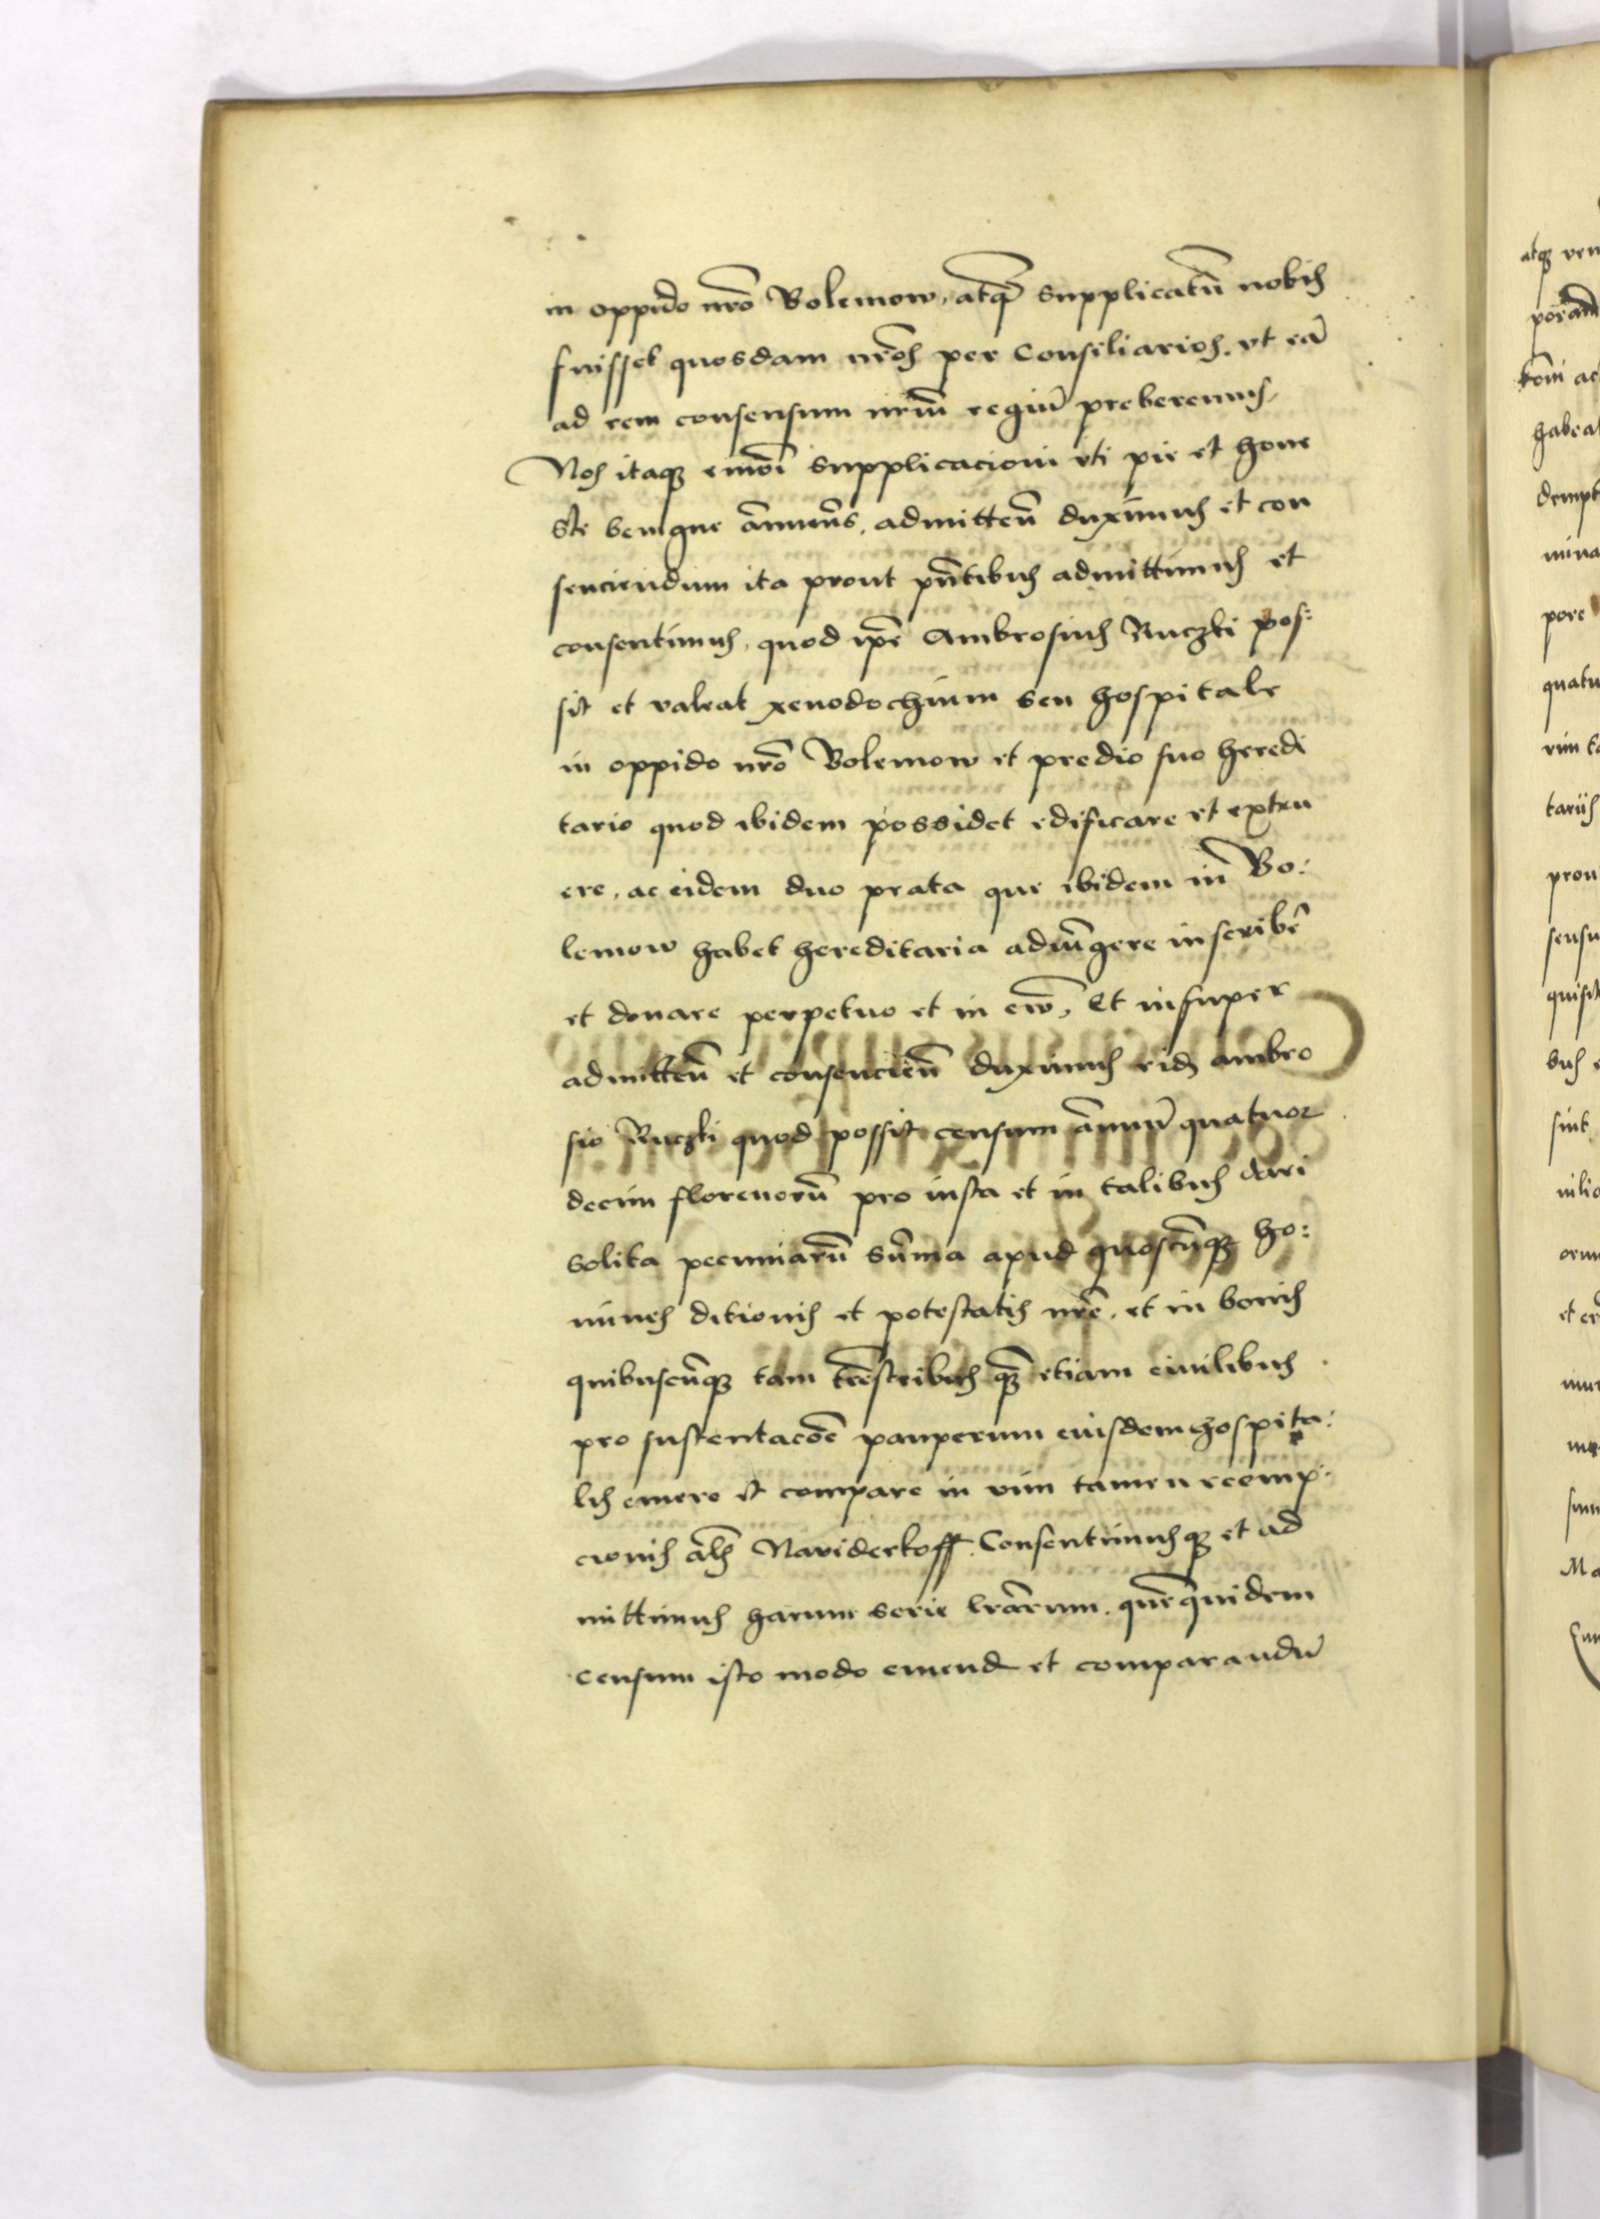 in oppido nro͞ Bolemow, atq͞ supplicatu͞ nobis
fuisset quosdam nr͞os per Consiliarios. vt ea͞
ad rem consensum nrm͞ regiu͞ preberemus,
Nos itaqꝫ supplicacioni vti pie et hone
ste benigne a͞nuen͞s. admitten͞ duximus et con
senciendum ita prout pn͞tibus admittimus et
consentimus, quod ip͞e Ambrosius Ruczki pos:
sit et valeat xenodochium seu hospitale
in oppido nro͞ Bolemow et predio suo heredi
tario quod ibidem possidet edificare et extru
ere, ac eidem duo prata que ibidem in Bo:
lemow habet hereditaria adiu͞gere inscribe͞
et donare perpetuo et in ew͞, Et insuper
admitten͞ et consencien͞ duximus eidꝫ ambro
sio Ruczki quod possit censum a͞nuu͞ quatuor
decim florenoru͞ pro iusta et in talibus dari
solita pecuniaru͞ su͞ma apud quoscu͞qꝫ ho:
mines ditionis et potestatis nre͞. et in bonis
quibuscu͞qꝫ tam tre͞stribus qꝫ͞ etiam ciuilibus
pro sustentaco͞e pauperum eiusdem hospita:
lis emere et compare in vim tamen reemp:
cionis al͞s Naviderkoff. Consentimusqꝫ et ad
mittimus harum serie lr͞arum. que͞quidem
censum isto modo emend et comparandu͞